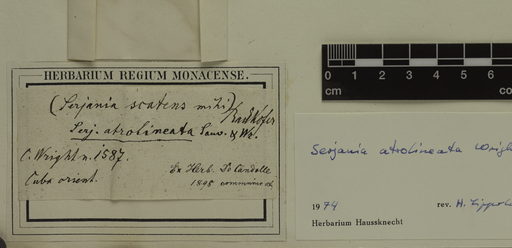 HERBARIUM REGIUM MONACENSE.
(Serjania scatens mihi) Radlkofer
Serj. atrolineata Sauv. & Wr.
C. Wright n. 1587.
Cuba orient.
Ex Herb. De Candolle
1895 communic.
cm
Serjania atrolineata Wright
1974 rev. H.
Herbarium Haussknecht